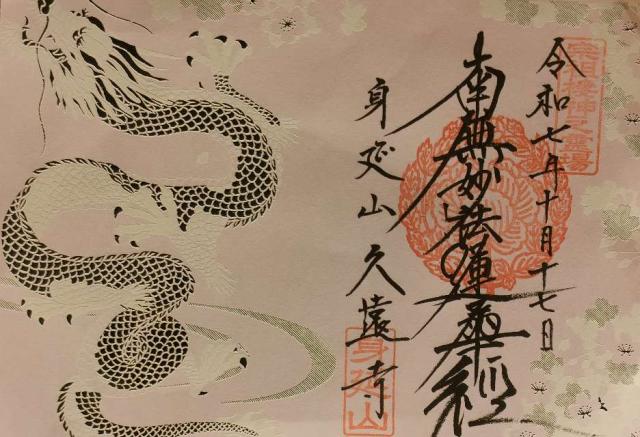 令和七年十月十七日
南無妙法蓮華経
身延山久遠寺
身延山